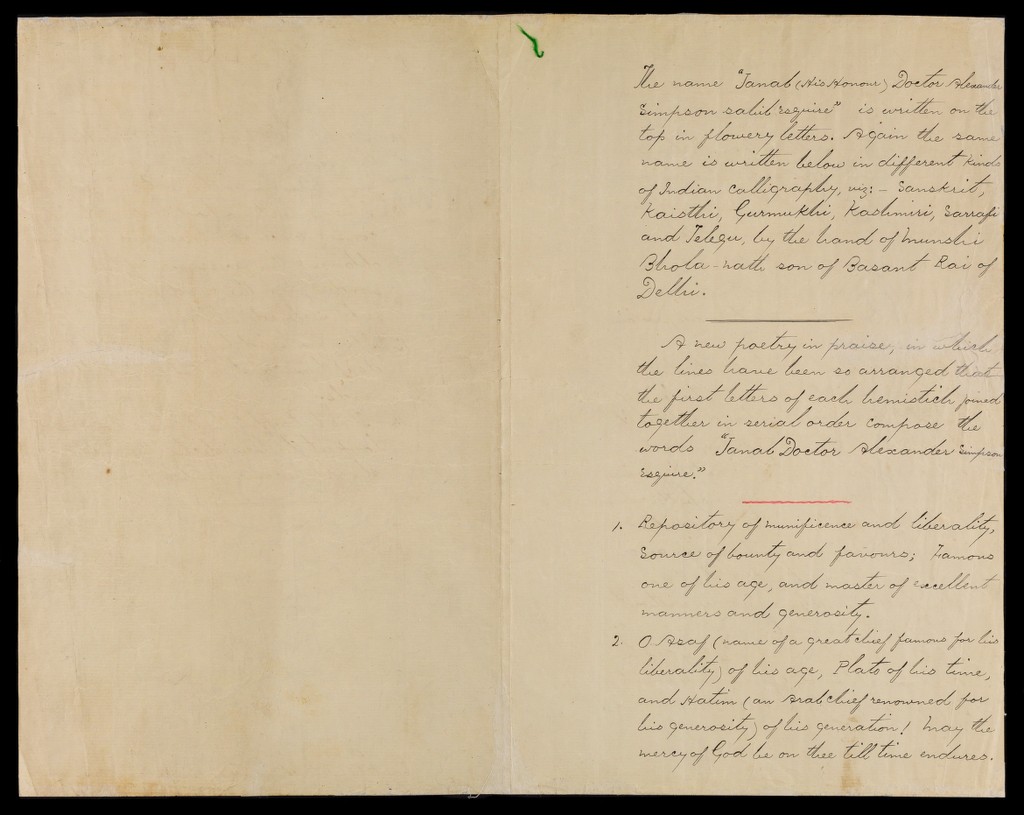 The name "Janab (His Honour) Doctor Alexander
Simpson sahib Esquire" is written on the
top in flowery letters. Again the same
name is written below in different kinds
of Indian Calligraphy, viz: - Sanskrit,
Kaisthi, Gurmukhi, Kashmiri, Sarrafi
and Telegu, by the hand of Munshi
Bhola-nath son of Basant Rai of
Delhi.
A new poetry in praise, in which
the lines have been so arranged that
the first letters of each hemistich joined
together in serial order compose the
words "Janab Doctor Alexander Simpson
Esquire."
1. Repository of munificence and liberality,
Source of bounty and favours; Famous
one of his age, and master of excellent
manners and generosity.
2. O Asaf (name of a great chief famous for his
liberality) of his age, Plato of his time,
and Hatim (an Arab chief renowned for
his generosity) of his generation! May the
mercy of God be on thee till time endures.